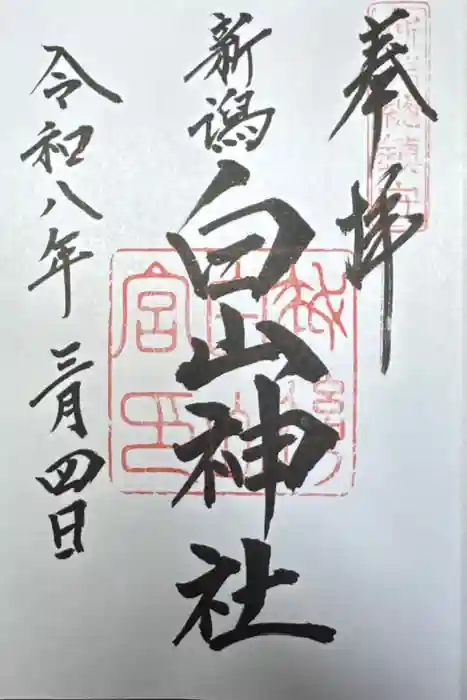 奉拝
新潟
白山神社
令和八年
三月四日